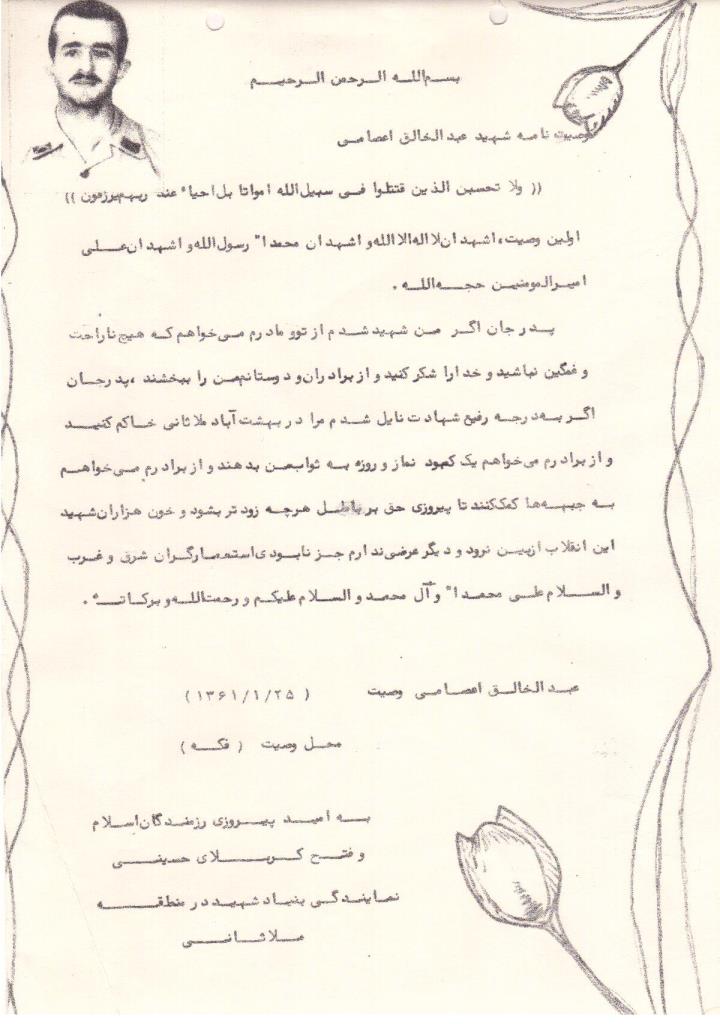 بسم‌الله الرحمن الرحیم
وصیت نامه شهید عبدالخالق اعصامی
(( ولا تحسبن الذین قتلوا فی سبیل‌الله امواتا بل‌احیاء عند ربهم‌یرزقون ))
اولین وصیت، اشهدان‌لااله‌الاالله‌و اشهدان محمدا" رسول‌الله‌و اشهدان‌علی
امیرالمومنین حجه‌الله .
پدرجان اگر من شهیدشدم از تووما‌درم می‌خواهم‌که هیچ‌ناراحت
و غمگین نباشید و خدا را شکرکنید و از برادران‌و دوستانم‌من را ببخشند ،پدرجان
اگر به‌درجه رفیع شهادت نایل شدم مرا در بهشت‌آباد ملاثانی خاکم‌کنید
و از برادرم می‌خواهم یک کمبود نماز و روزه به ثوابم‌ن بدهند و از برادرم می‌خواهم
به جبهه‌ها کمک‌کنند تا پیروزی حق بر باطل هرچه زودتر بشود و خون هزاران‌شهید
این انقلاب ازبین نرود و دیگر عرضی‌ندارم جز نابودی‌استعمارگران شرق و غرب
و السلام علی محمدا" و آل محمد و السلام‌علیکم و رحمت‌الله‌و برکاته .
عبدالخالق اعصامی وصیت ( ۱۳۶۱/۱/۲۵ )
محل وصیت ( فکه )
به امید پیروزی رزمندگان‌اسلام
و فتح کربلای حسینی
نمایندگی بنیاد شهید در منطقه
ملاثانی